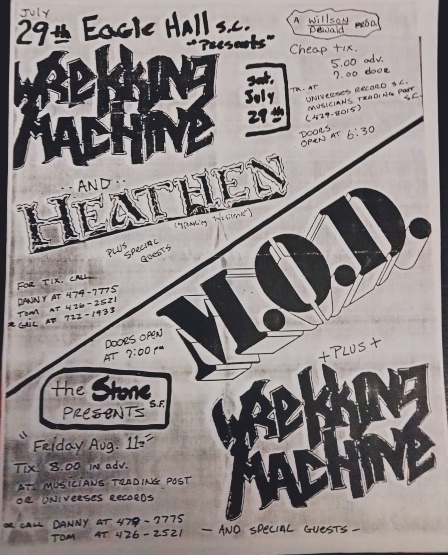 July
29th Eagle Hall S.C.
"Presents"
WREKKING
MACHINE
Sat.
July
29th
A Willson
Dewald
Cheap tix.
5.00 adv.
7.00 door
TIX. AT
UNIVERSES RECORD S.C.
MUSICIANS TRADING POST
S.C.
(429-8015)
DOORS
OPEN AT 6:30
..AND..
HEATHEN
PLUS
SPECIAL
GUESTS
FOR TIX. CALL
DANNY AT 479-7775
TOM AT 426-2521
or GAIL AT 722-1933
M.O.D.
DOORS OPEN
AT 7:00 PM
the Stone
S.F.
PRESENTS
"Friday Aug. 11th"
TIX. 8.00 in adv.
AT MUSICIANS TRADING POST
OR UNIVERSES RECORDS
or CALL DANNY AT 479-7775
TOM AT 426-2521
+PLUS+
WREKKING
MACHINE
- AND SPECIAL GUESTS -